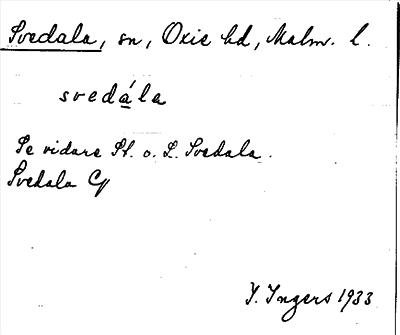 Svedala, sn, Oxie hd, Malm. l.
svedála
Se vidare St. o. L. Svedala.
Svedala Cp
I. Ingers 1933